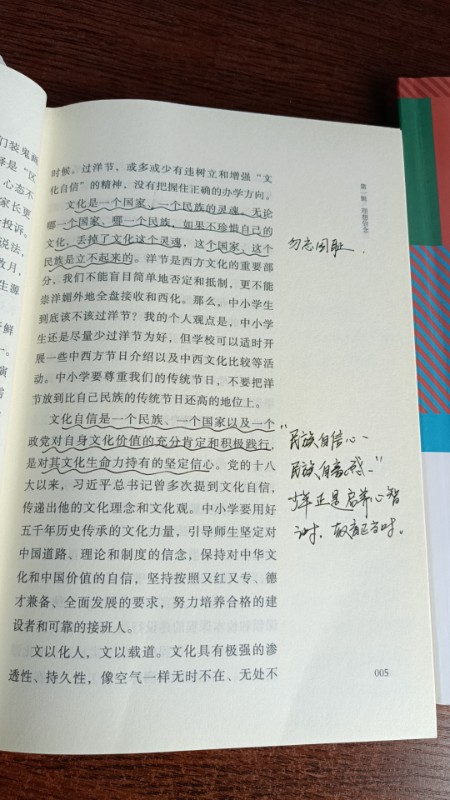 们装鬼
译是“区
心态不
家长更
投诉。
说法,
数月,
生源
鲜
一。
演
时候。过洋节,或多或少有违树立和增强“文
化自信”的精神,没有把握住正确的办学方向。
文化是一个国家、一个民族的灵魂。无论
哪一个国家、哪一个民族,如果不珍惜自己的
文化,丢掉了文化这个灵魂,这个国家、这个
民族是立不起来的。洋节是西方文化的重要部
分,我们不能盲目简单地否定和抵制,更不能
崇洋媚外地全盘接收和西化。那么,中小学生
到底该不该过洋节?我的个人观点是,中小学
生还是尽量少过洋节为好,但学校可以适时开
展一些中西方节日介绍以及中西文化比较等活
动。中小学要尊重我们的传统节日,不要把洋
节放到比自己民族的传统节日还高的地位上。
文化自信是一个民族、一个国家以及一个
政党对自身文化价值的充分肯定和积极践行,
是对其文化生命力持有的坚定信心。党的十八
大以来,习近平总书记曾多次提到文化自信,
传递出他的文化理念和文化观。中小学要用好
五千年历史传承的文化力量,引导师生坚定对
中国道路、理论和制度的信念,保持对中华文
化和中国价值的自信,坚持按照又红又专、德
才兼备、全面发展的要求,努力培养合格的建
设者和可靠的接班人。
文以化人,文以载道。文化具有极强的渗
透性、持久性,像空气一样无时不在、无处不
第一辑 理想信念
勿忘国耻.
“民族自信心、
民族自豪感。”
少年正是启养心智
之时,教育正当时。
005